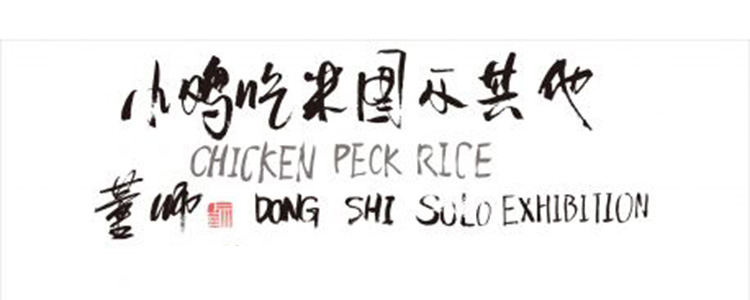 小鸡吃米图及其他
CHICKEN PECK RICE
董师 DONG SHI SOLO EXHIBITION